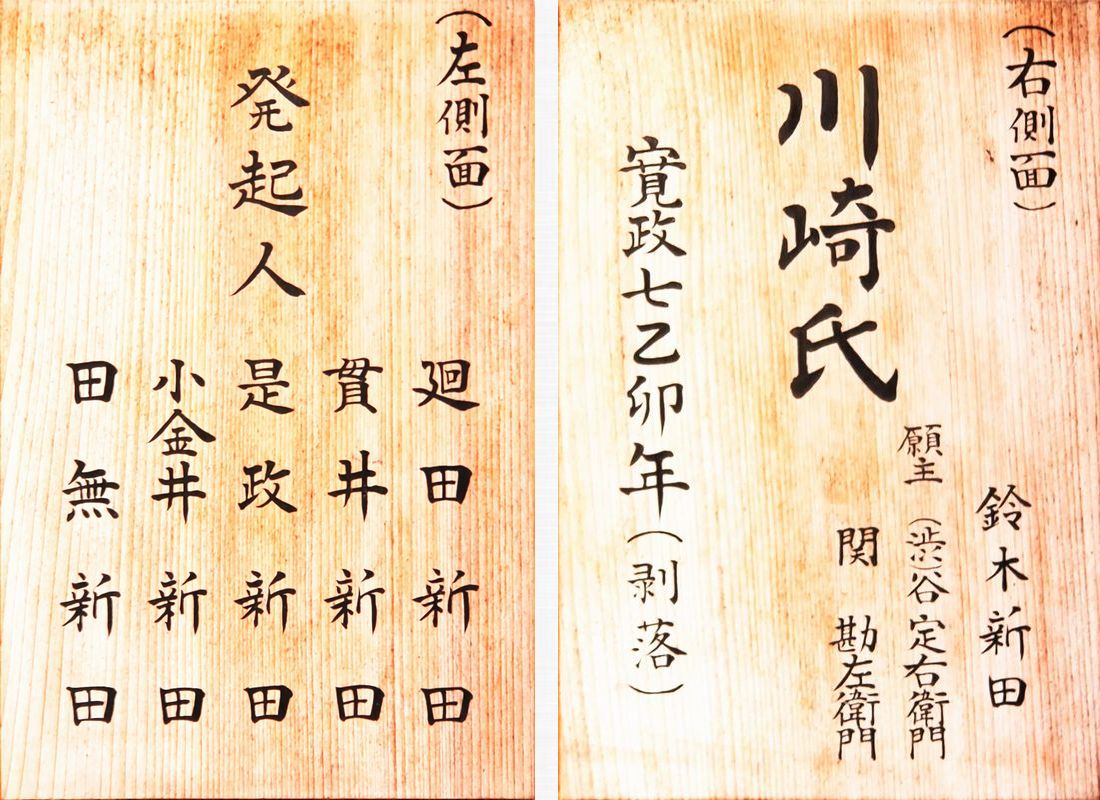 （右側面）
川崎氏
鈴木新田
願主（渋）谷定右衛門
関勘左衛門
寛政七乙卯年（剥落）
（左側面）
発起人
廻田新田
貫井新田
是政新田
小金井新田
田無新田